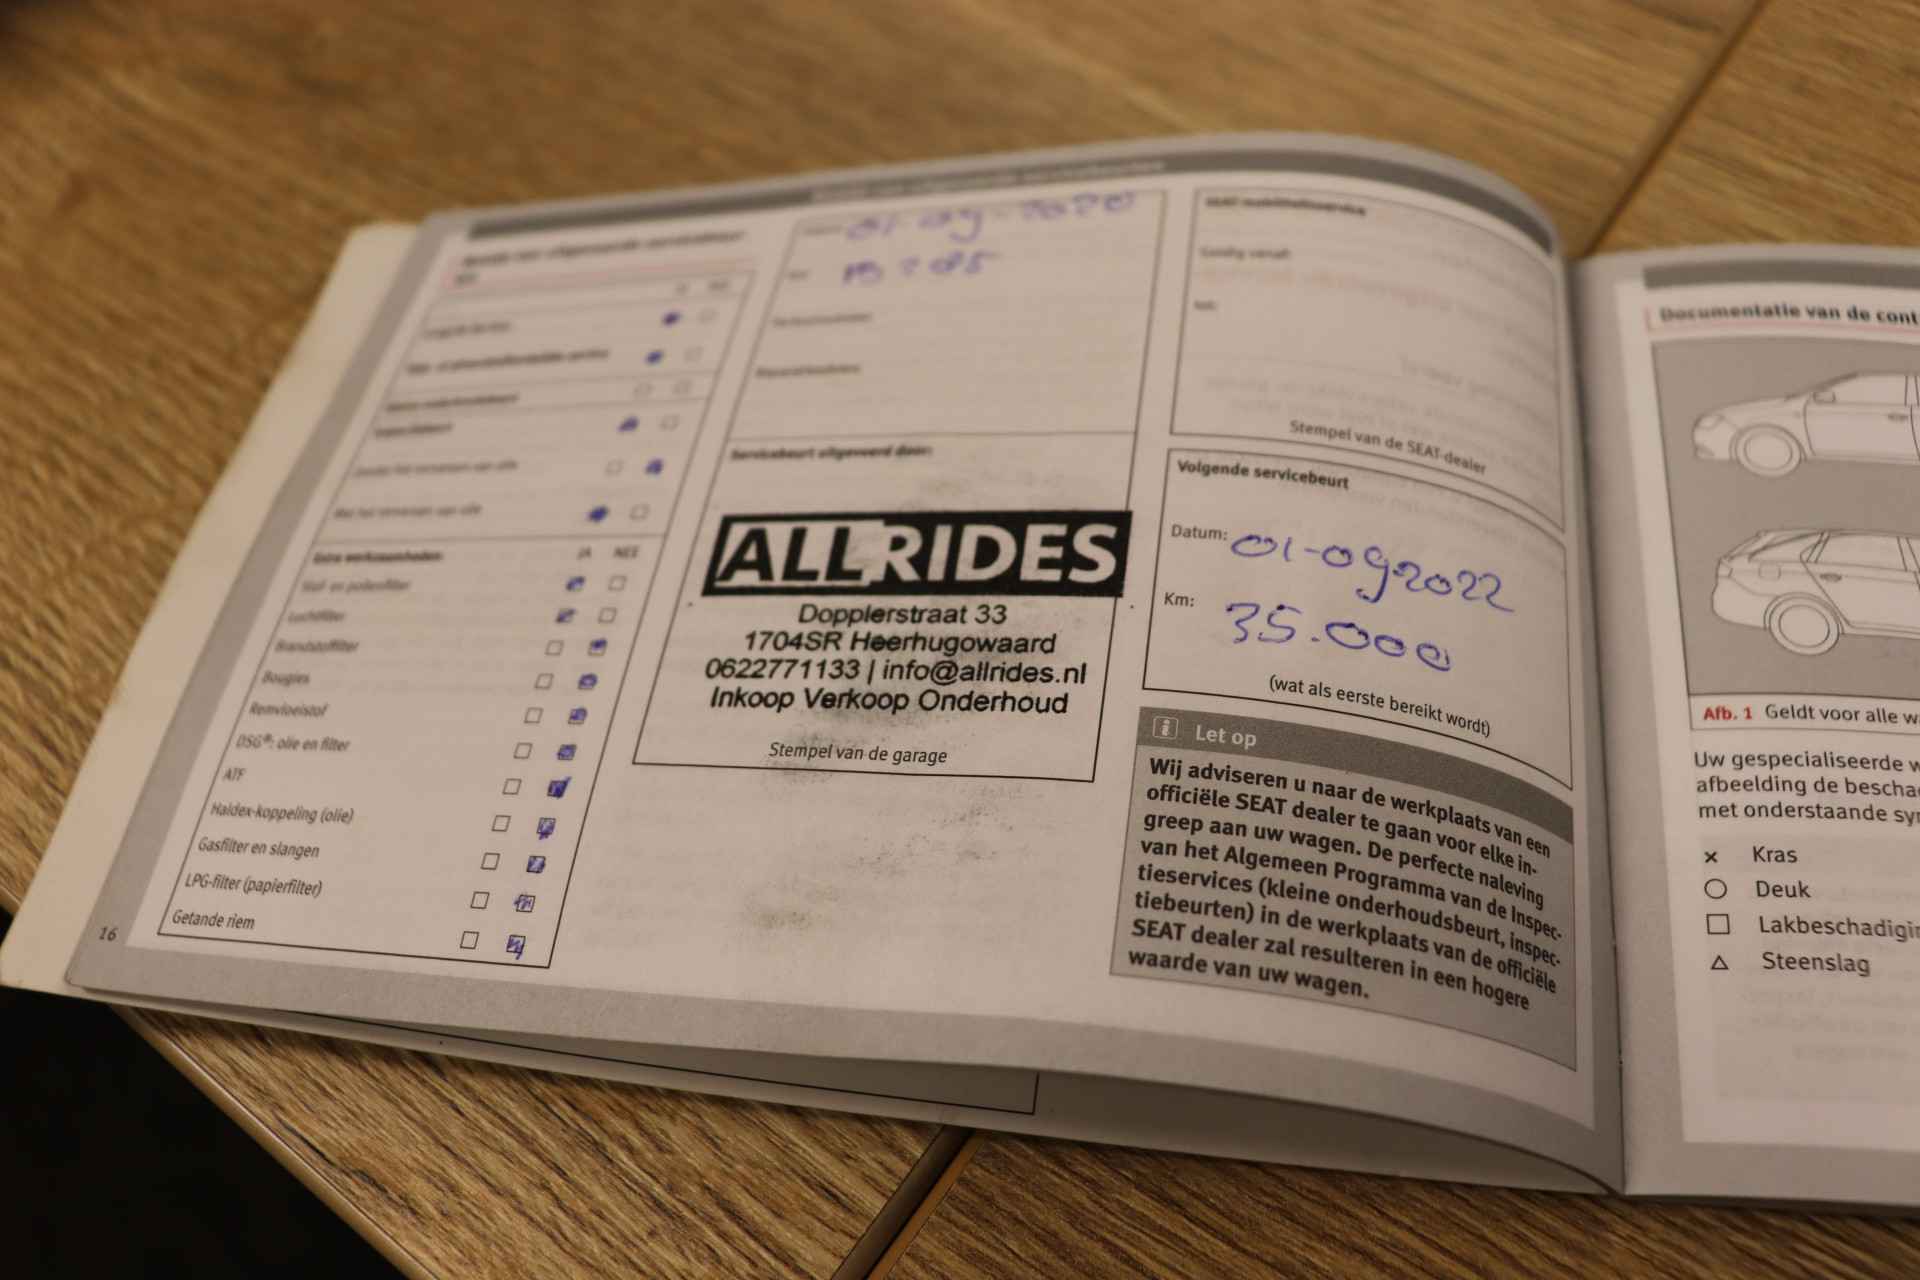 01-09-2020
Servicebeurt uitgevoerd door:
ALLRIDES
Dopplerstraat 33
1704SR Heerhugowaard
0622771133 | info@allrides.nl
Inkoop Verkoop Onderhoud
Stempel van de garage
Met het verversen van olie
Extra werkzaamheden:
JA NEE
Stof- en pollenfilter
Luchtfilter
Brandstoffilter
Bougies
Remvloeistof
DSG®: olie en filter
ATF
Haldex-koppeling (olie)
Gasfilter en slangen
LPG-filter (papierfilter)
Getande riem
16
SEAT mobiliteitsservice
Geldig vanaf:
tot:
Stempel van de SEAT-dealer
Volgende servicebeurt
Datum: 01-09-2022
Km: 35.000
(wat als eerste bereikt wordt)
i Let op
Wij adviseren u naar de werkplaats van een
officiële SEAT dealer te gaan voor elke in-
greep aan uw wagen. De perfecte naleving
van het Algemeen Programma van de Inspec-
tieservices (kleine onderhoudsbeurt, inspec-
tiebeurten) in de werkplaats van de officiële
SEAT dealer zal resulteren in een hogere
waarde van uw wagen.
Documentatie van de cont
Afb. 1 Geldt voor alle w
Uw gespecialiseerde w
afbeelding de bescha
met onderstaande sy
Kras
Deuk
Lakbeschadigin
Steenslag